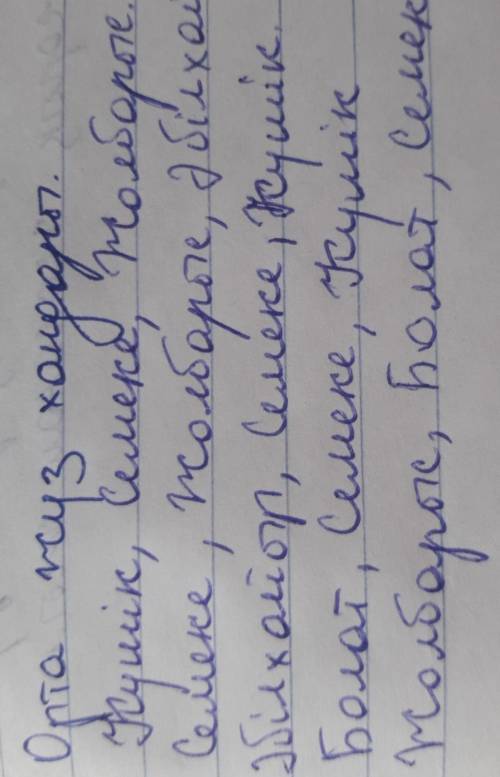 Орта жүз хандары.
Күшік, Семеке, Жолбарыс.
Семеке, Жолбарыс, Әбілхаи
Әбілхайыр, Семеке, Күшік.
Болат, Семеке, Күшік
Жолбарыс, Болат, Семек